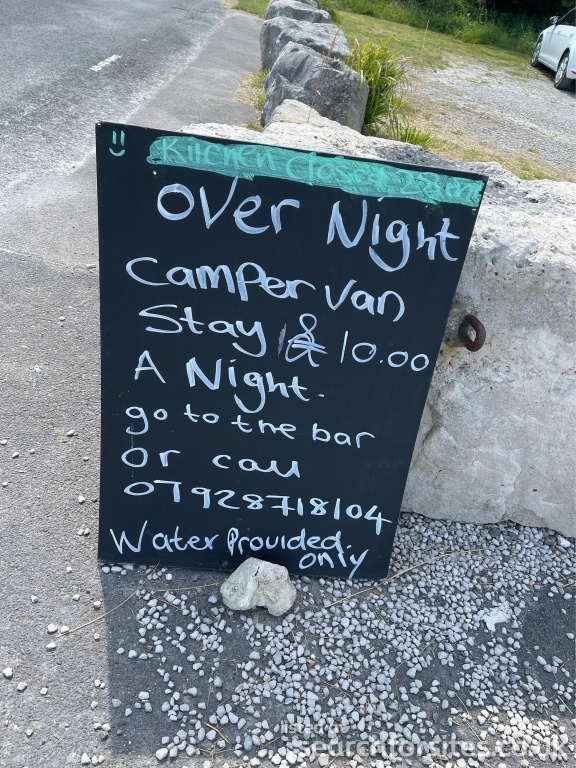 Kitchen Closed
Over Night
Camper Van
Stay £ 10.00
A Night.
go to the bar
Or call
07928718104
Water Provided.
only
listed on
searchforsites.co.uk